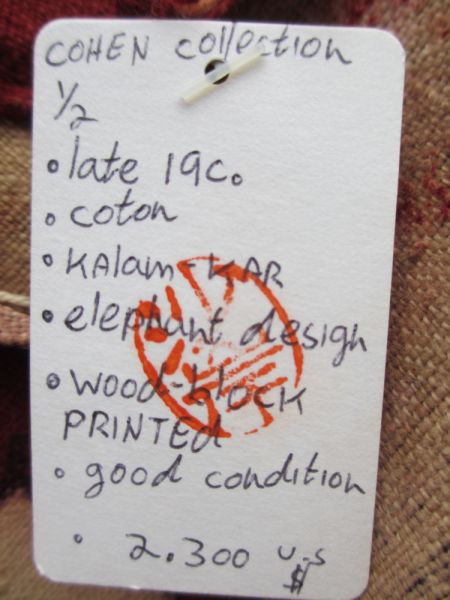 COHEN collection
1/2
• late 19c.
• coton
• KAlam-KAR
• elephant design
• wood-blocK
PRINTEd
• good condition
• 2.300 U.S
$